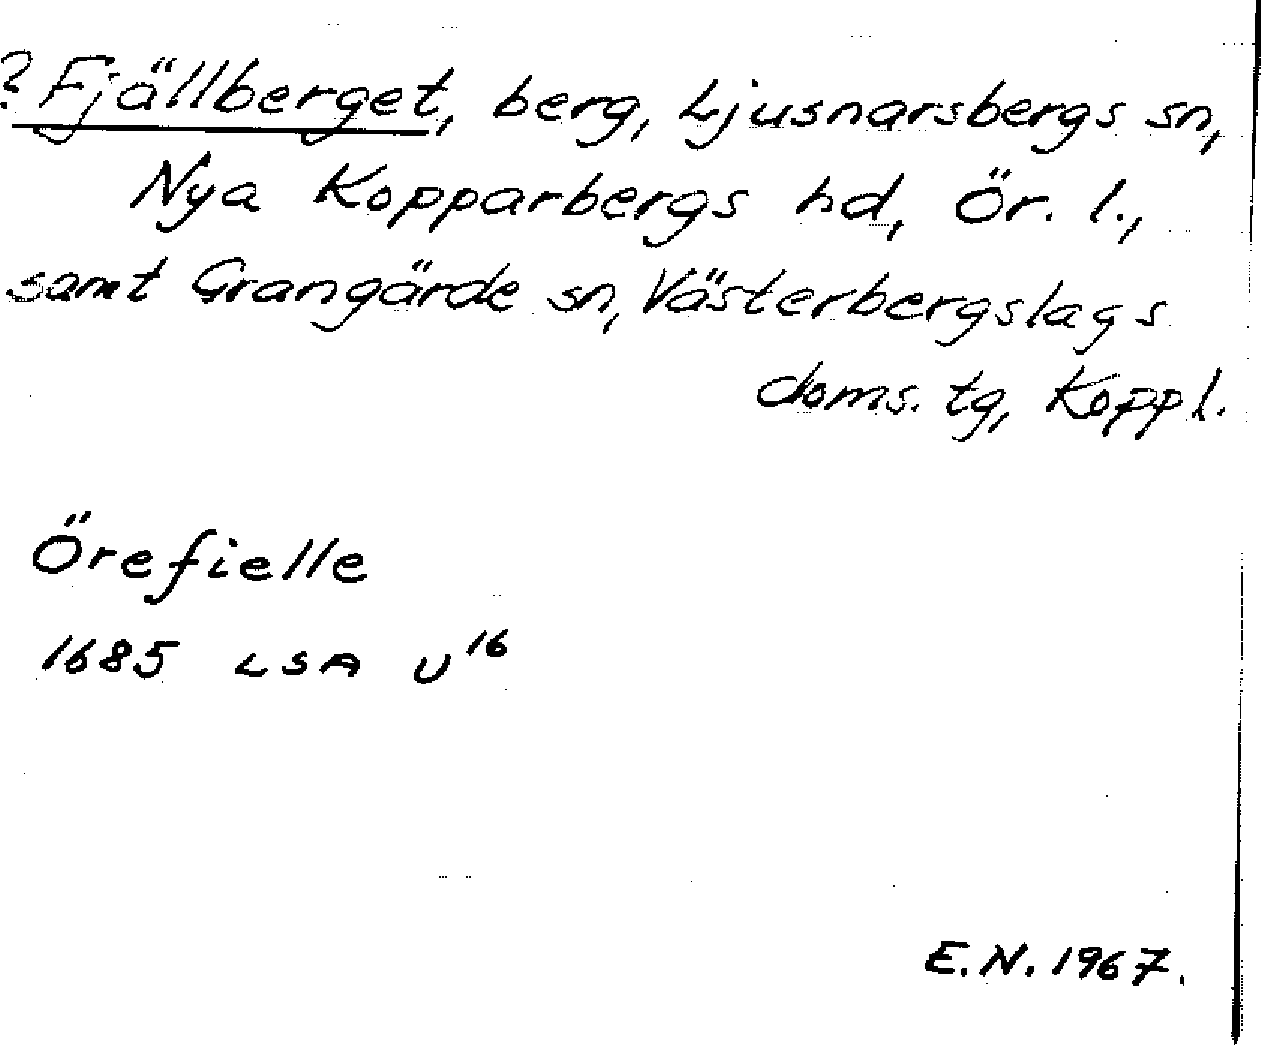 ? Fjällberget, berg, Ljusnarsbergs sn,
Nya Kopparbergs hd, Ör. l.,
samt Grangärde sn, Västerbergslags
doms. tg, Kopp l.
Örefielle
1685 LSA U¹⁶
E.N. 1967.